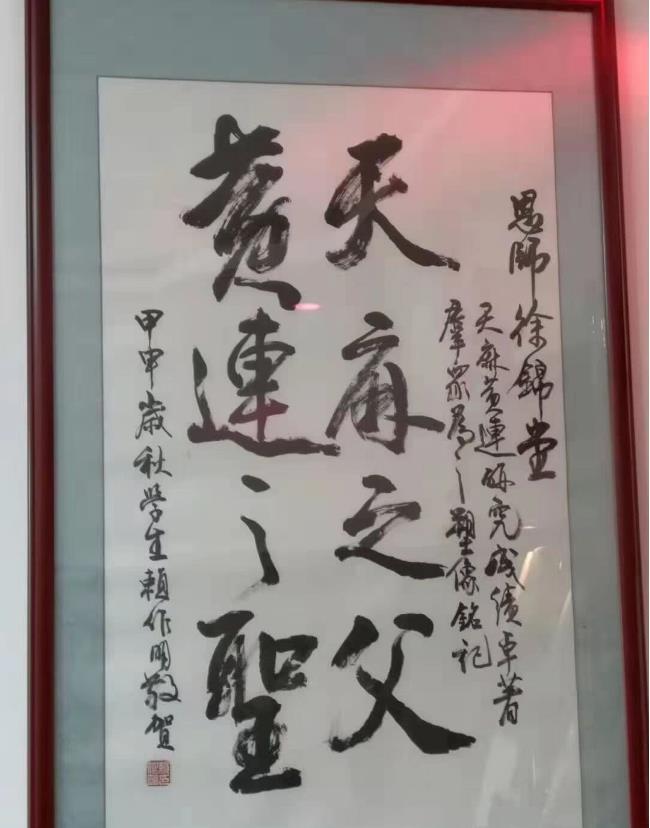 恩師徐錦堂
天麻黃連研究成績卓著
羣眾為之塑像銘記
天麻之父
黃連之聖
甲申歲秋學生賴作明敬賀